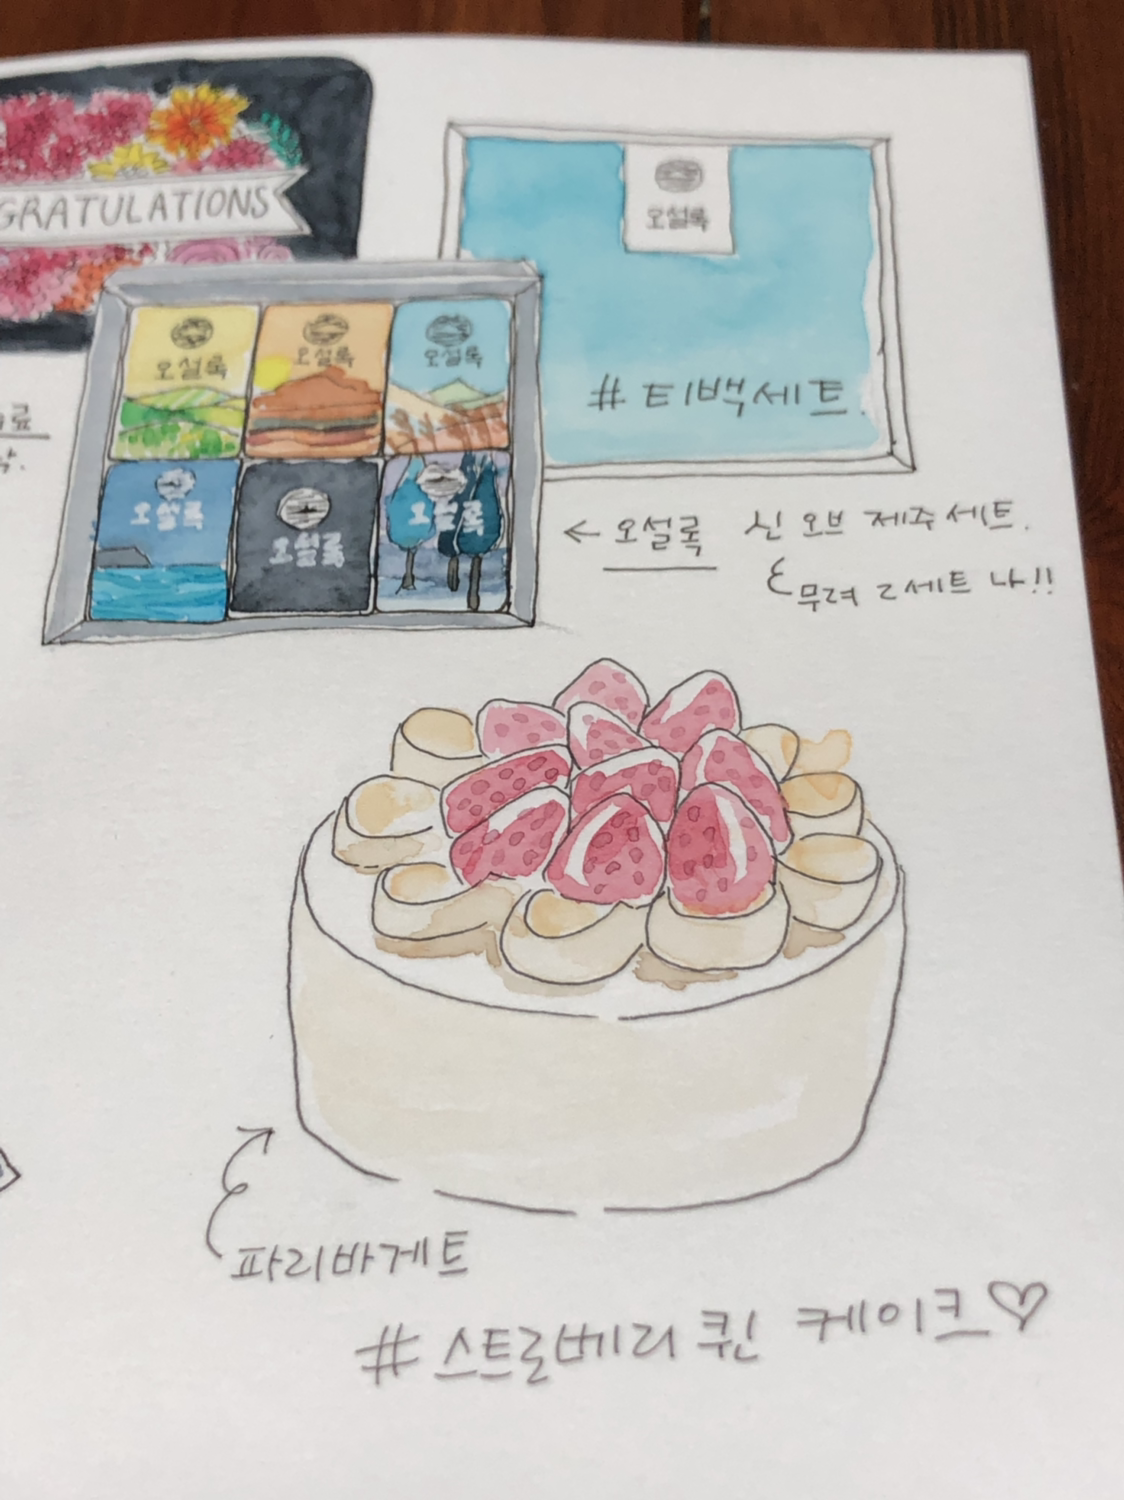 GRATULATIONS
오설록
# 티백세트.
오설록
오설록
오설록
오설록
오설록
오설록
← 오설록 신 오브 제주 세트.
무려 2세트 나!!
파리바게트
# 스트로베리 퀸 케이크♡